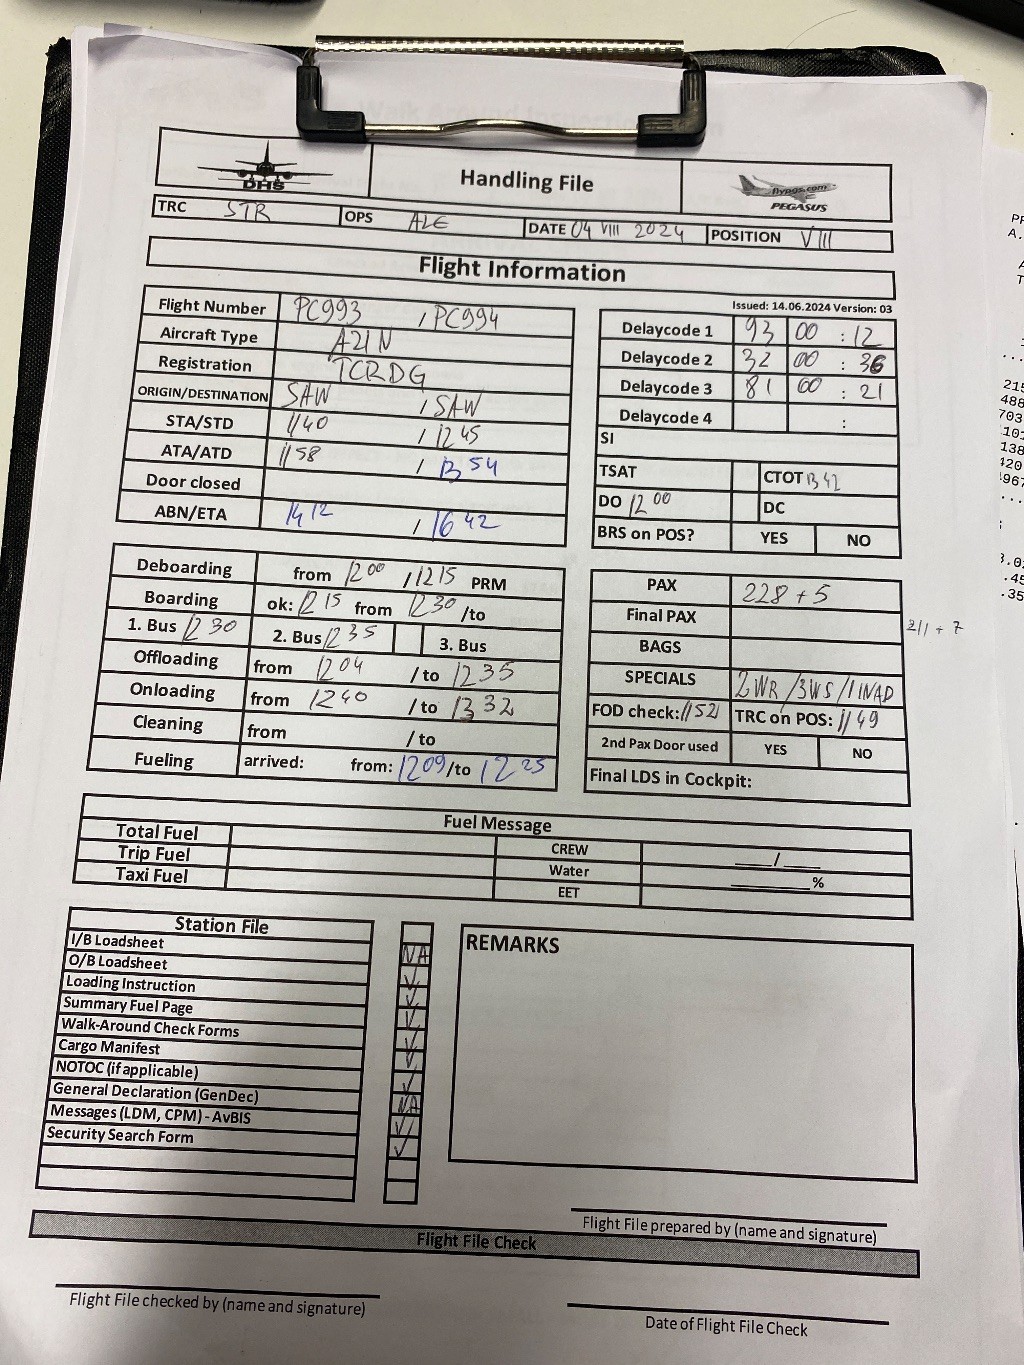 DHS
Handling File
flypgs.com
PEGASUS
TRC STR OPS ALE DATE 04 VIII 2024 POSITION VIII
Flight Information
Issued: 14.06.2024 Version: 03
Flight Number PC993 / PC994
Aircraft Type A21N
Registration TCRDG
ORIGIN/DESTINATION SAW / SAW
STA/STD 1140 / 1245
ATA/ATD 1158 / 1354
Door closed
ABN/ETA 1412 / 1642
Delaycode 1 93 00 : 12
Delaycode 2 32 00 : 36
Delaycode 3 81 00 : 21
Delaycode 4 :
SI
TSAT CTOT 1342
DO 1200 DC
BRS on POS? YES NO
Deboarding from 1200 / 1215 PRM
Boarding ok: 1215 from 1230 /to
1. Bus 1230 2. Bus 1235 3. Bus
Offloading from 1204 / to 1235
Onloading from 1240 / to 1332
Cleaning from / to
Fueling arrived: from: 1209 /to 1225
PAX 228 + 5
Final PAX 211 + 7
BAGS
SPECIALS 2WR /3WS /1INAD
FOD check: 1152 TRC on POS: 1149
2nd Pax Door used YES NO
Final LDS in Cockpit:
Fuel Message
Total Fuel CREW ____/____
Trip Fuel Water ________%
Taxi Fuel EET
Station File
I/B Loadsheet NA
O/B Loadsheet ✓
Loading Instruction ✓
Summary Fuel Page ✓
Walk-Around Check Forms ✓
Cargo Manifest ✓
NOTOC (if applicable) ✓
General Declaration (GenDec) NA
Messages (LDM, CPM) - AvBIS ✓
Security Search Form ✓
REMARKS
Flight File prepared by (name and signature)
Flight File Check
Flight File checked by (name and signature)
Date of Flight File Check